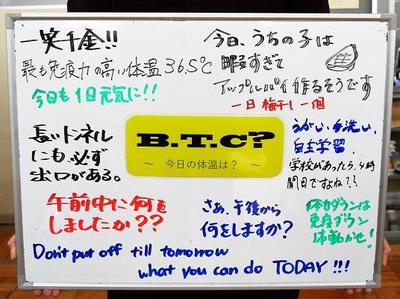 一笑千金!!
最も免疫力の高い体温36.5℃
今日も1日元気に!!
今日、うちの子は
暇すぎて
アップルパイ作るそうです
一日梅干し一個
長いトンネル
にも必ず
出口がある。
B.T.C?
~ 今日の体温は? ~
うがい、手洗い、
自主学習。
学校があったら、4時
間目ですよね??
午前中に何を
しましたか??
さあ、午後から
何をしますか?
体力ダウンは
免疫ダウン
体動かせ!
Don't put off till tomorrow
what you can do TODAY!!!